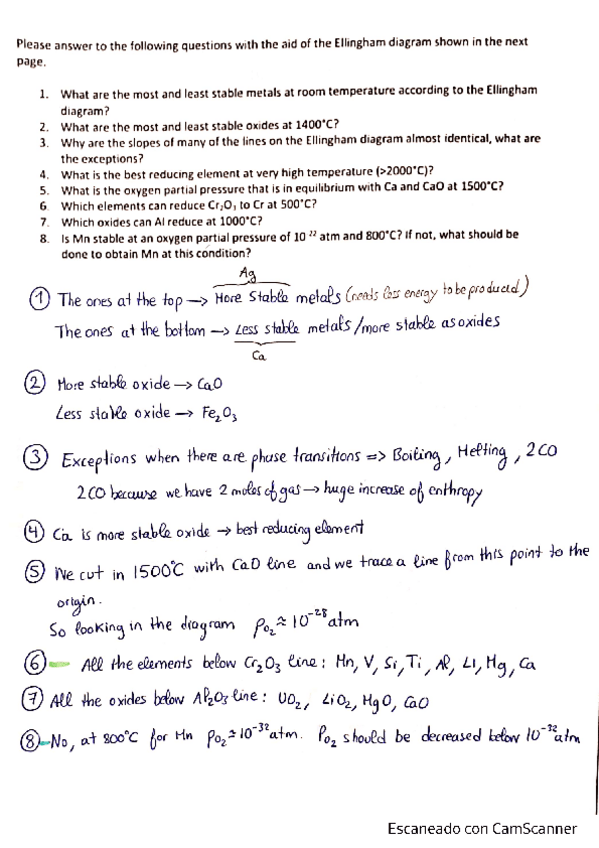 Please answer to the following questions with the aid of the Ellingham diagram shown in the next
page.
1. What are the most and least stable metals at room temperature according to the Ellingham
diagram?
2. What are the most and least stable oxides at 1400°C?
3. Why are the slopes of many of the lines on the Ellingham diagram almost identical, what are
the exceptions?
4. What is the best reducing element at very high temperature (>2000°C)?
5. What is the oxygen partial pressure that is in equilibrium with Ca and CaO at 1500°C?
6. Which elements can reduce Cr₂O₃ to Cr at 500°C?
7. Which oxides can Al reduce at 1000°C?
8. Is Mn stable at an oxygen partial pressure of 10⁻²² atm and 800°C? If not, what should be
done to obtain Mn at this condition?
Ag
① The ones at the top → More Stable metals (needs less energy to be produced)
The ones at the bottom → Less stable metals/more stable as oxides
Ca
② More stable oxide → CaO
Less stable oxide → Fe₂O₃
③ Exceptions when there are phase transitions => Boiling, Melting, 2CO
2CO because we have 2 moles of gas → huge increase of enthropy
④ Ca is more stable oxide → best reducing element
⑤ We cut in 1500°C with CaO line and we trace a line from this point to the
origin.
So looking in the diagram pO₂ ≈ 10⁻²⁸ atm
⑥ All the elements below Cr₂O₃ line: Mn, V, Si, Ti, Al, Li, Mg, Ca
⑦ All the oxides below Al₂O₃ line: UO₂, LiO₂, MgO, CaO
⑧ No, at 800°C for Mn pO₂ ≈ 10⁻³² atm. PO₂ should be decreased below 10⁻³² atm
Escaneado con CamScanner